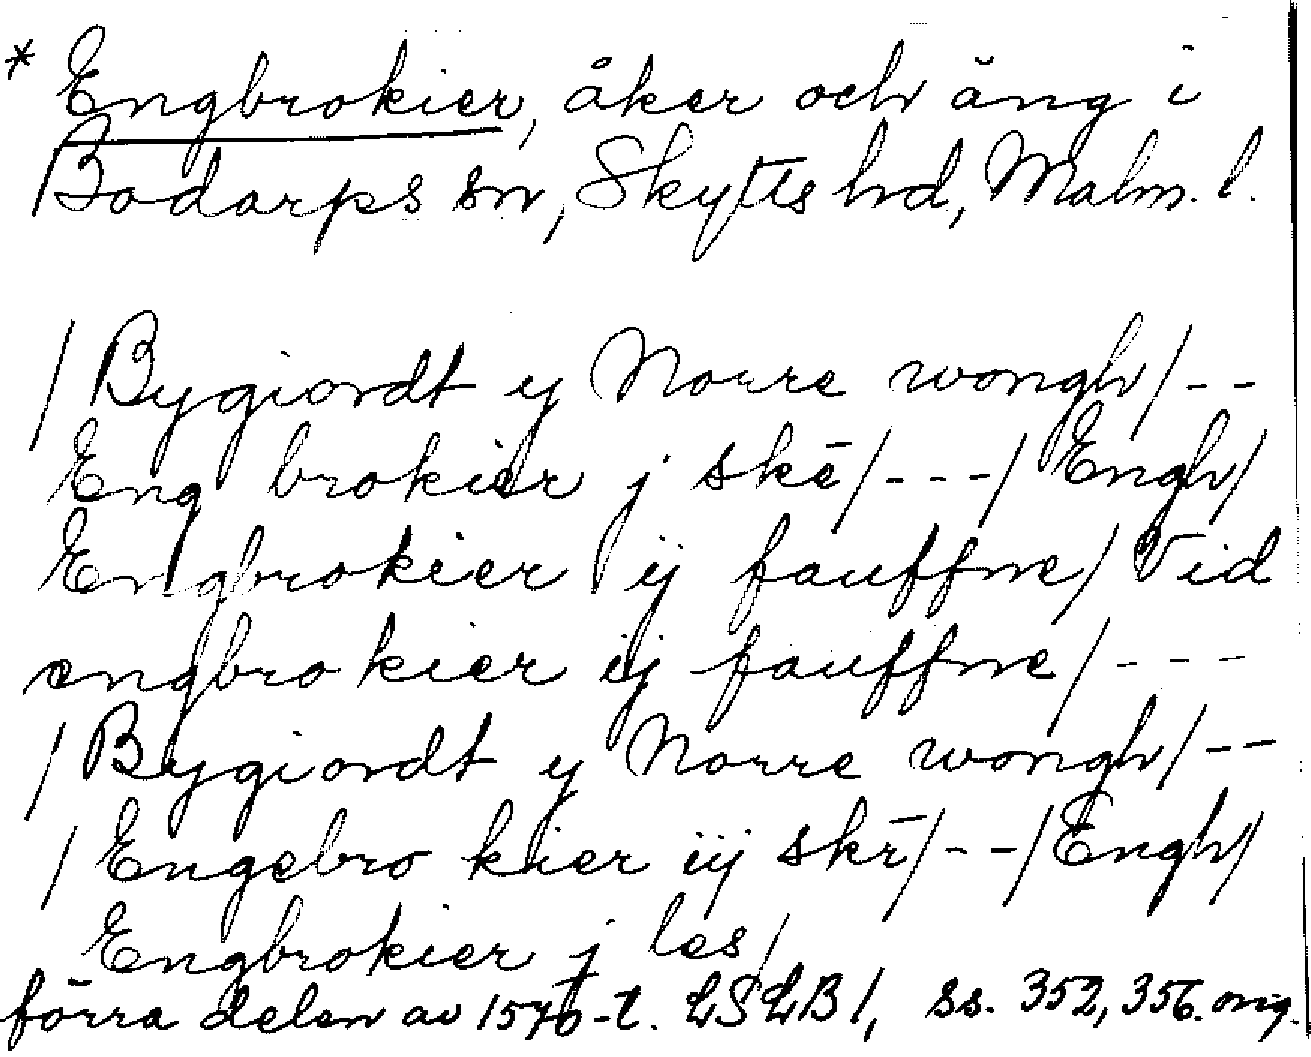 * Engbrokier, åker och äng i
Bodarps sn, Skytts hd, Malm. l.
/ Bygiordt y Norre wongh/--
Eng brokier j skē/---/ Engh/
Engbrokier ij fauffne/ Vid
engbro kier iij fauffne/---
/ Bygiordt y Norre wongh/--
/ Engebro kier iij skr̄/--/Engh/
Engbrokier j les/
förra delen av 1570-t. LSLB 1, ss. 352, 356. orig.